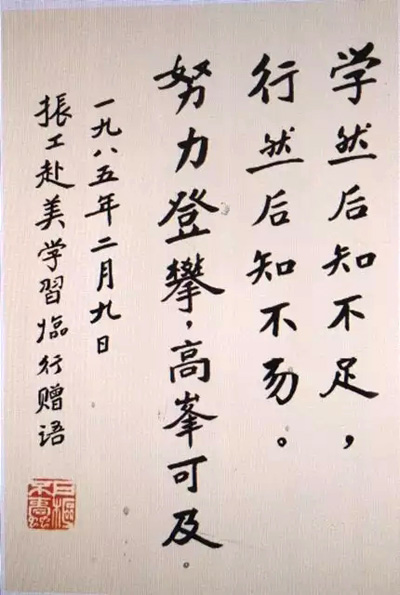 学然后知不足，
行然后知不易。
努力登攀，高峯可及。
一九八五年二月九日
振工赴美学習臨行赠语